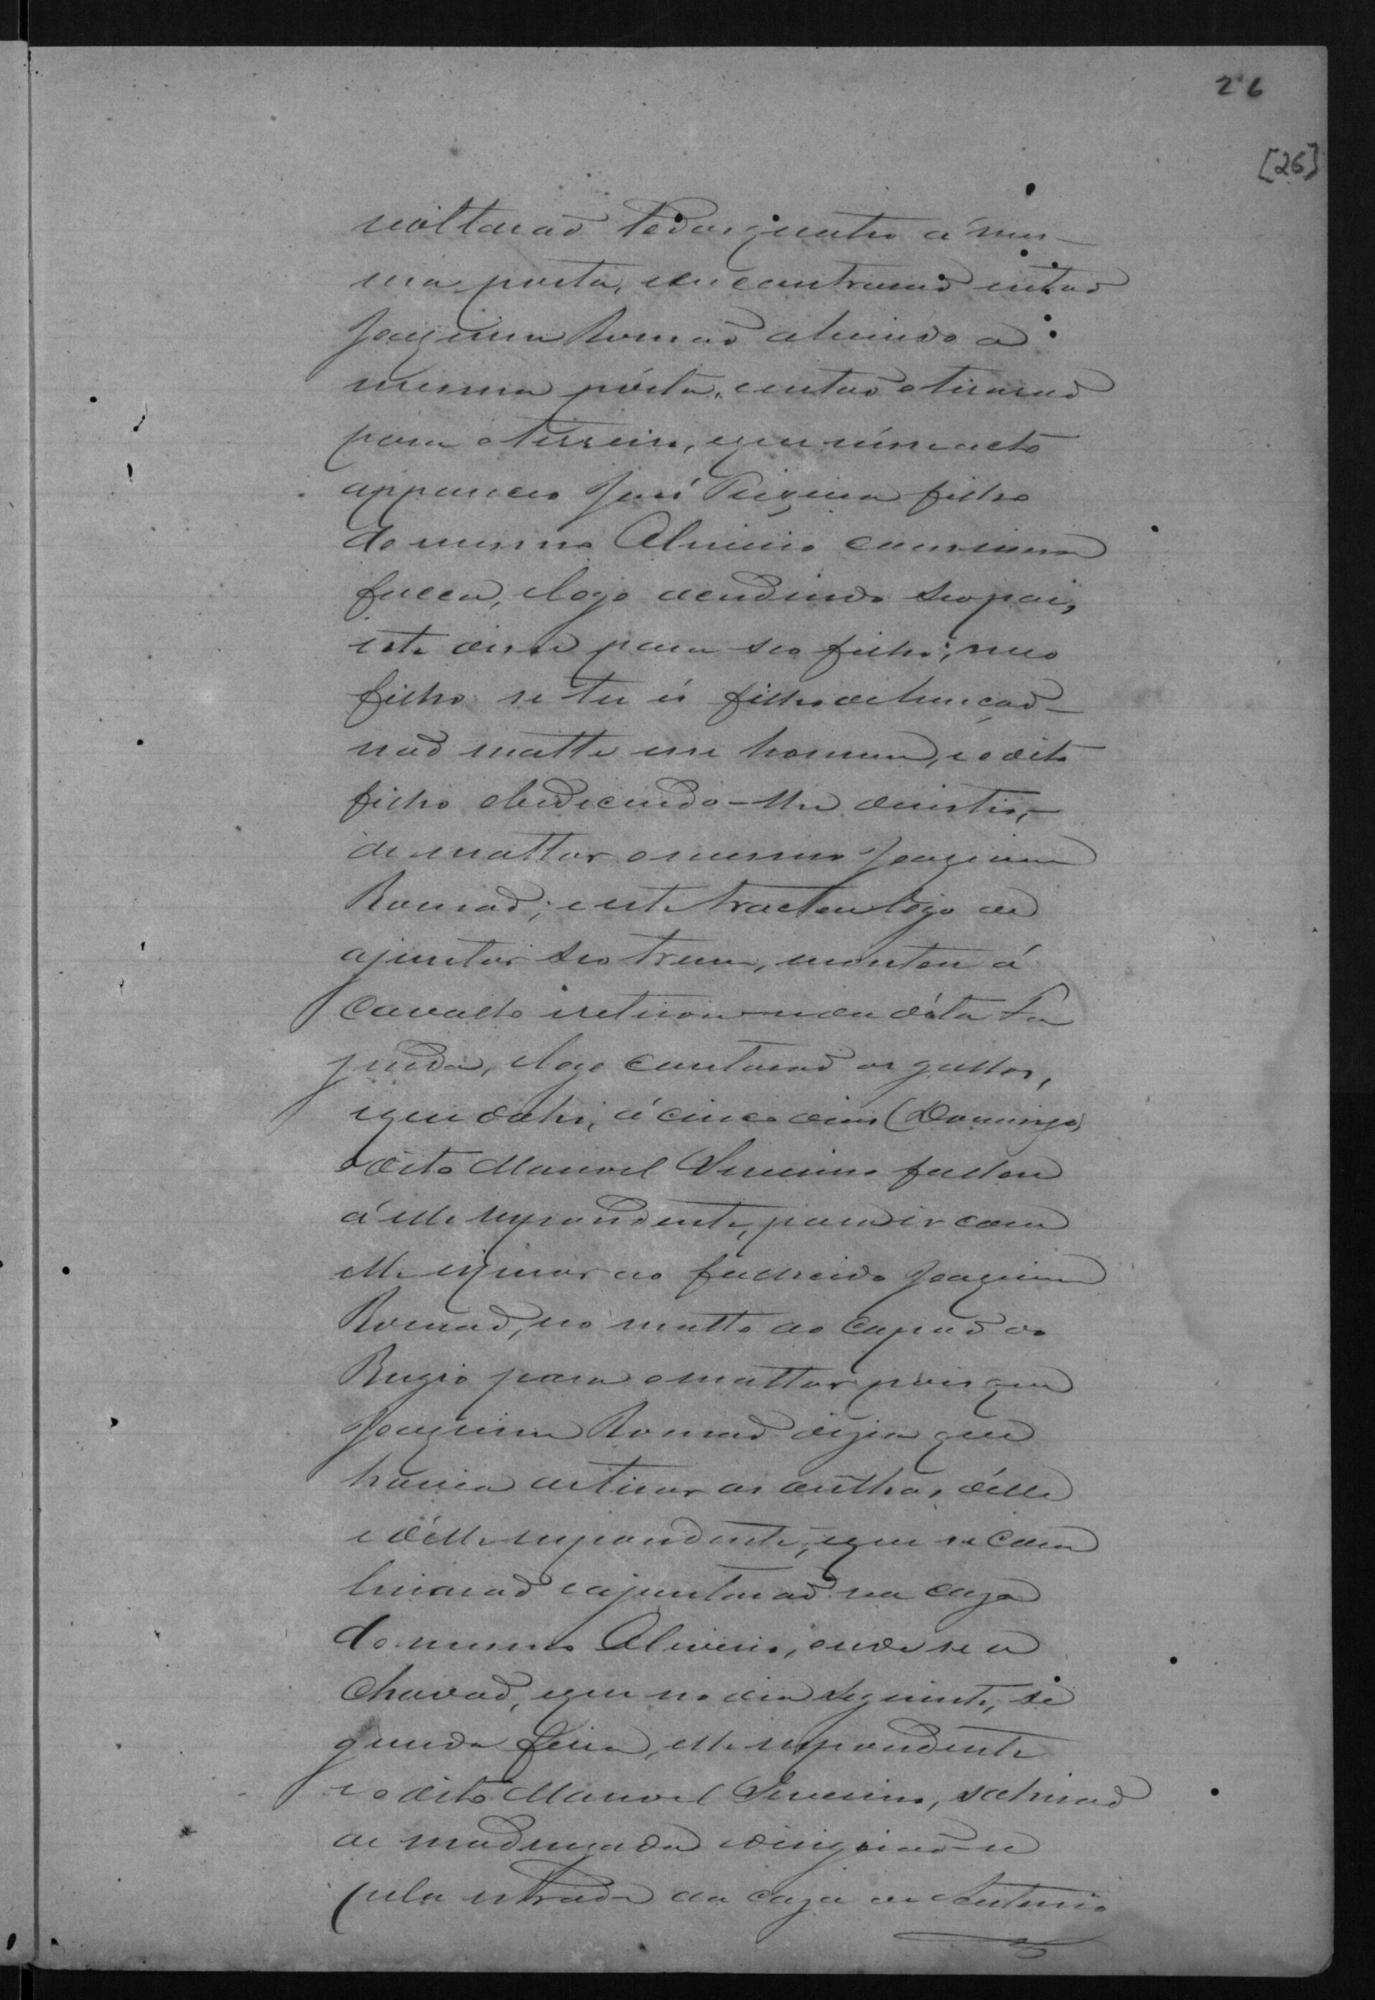 26
[26]
voltarão todos quatro á mes-
ma porta, encontrarão então
Joaquim Romão abrindo a
mesma pórta, então o tirarão
para o terreiro, e que n'isse acto
appareceo José Teixeira filho
do mesmo Oliverio com uma
faca, e logo acudindo seo pai,
este disse para seo filho; meo
filho se tu és filho de benção
não matte esse homem, e o dito
filho obedecendo-lhe desistio,
de mattar o mesmo Joaquim
Romão; e este tractou logo de
ajuntar seo trem, montou á
cavallo e retirou-se da dita Fa
zenda, e logo cantarão os gallos,
e que dahi, á cinco dias (Domingo)
o dito Manoel Severino fallou
á elle respondente, para ir com
elle esperar ao fallecido Joaquim
Romão, no matto do Capão do
Bugio para o mattar pois que
Joaquim Romão dizia que
havia de tirar as orelhas délle
e délle respondente, e que se com
binarão e ajuntarão na caza
do mesmo Oliverio, onde se a
chavão, e que no dia seguinte, se
gunda feira, elle respondente
e o dito Manoel Severino, sahirão
de madrugada e dirigirão-se
pela estrada da caza de Antonio